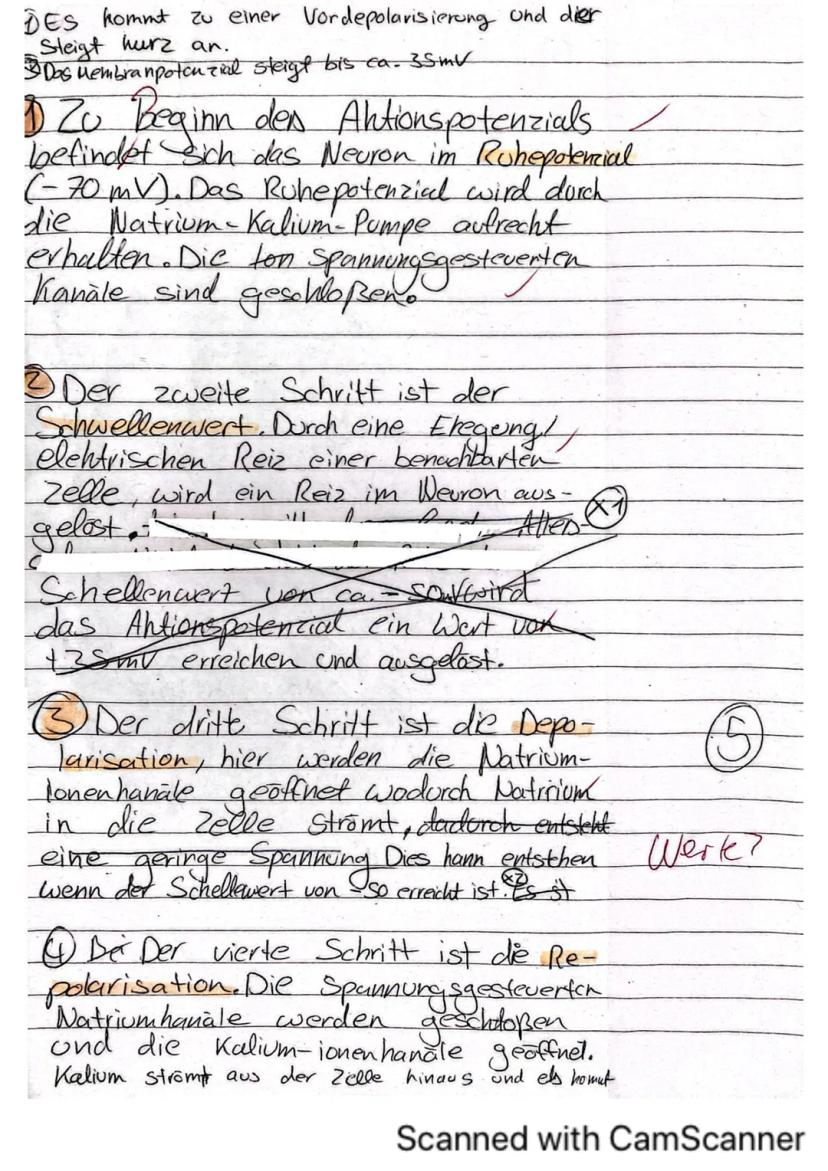 1) Es kommt zu einer Vordepolarisierung und dier
steigt kurz an.
3) Das Membranpotenzial steigt bis ca. 35mV
1) Zu Beginn des Aktionspotenzials
befindet sich das Neuron im Ruhepotenzial
(-70 mV). Das Ruhepotenzial wird durch
die Natrium-Kalium-Pumpe aufrecht
erhalten. Die Ion spannungsgesteuerten
Kanäle sind geschloßen.
2 Der zweite Schritt ist der
Schwellenwert. Durch eine Eregung/
elektrischen Reiz einer benachbarten
Zelle, wird ein Reiz im Neuron aus-
gelöst. Alles- x1
Schellenwert von ca. -50mV wird
das Aktionspotenzial ein Wert von
+35mV erreichen und ausgelöst.
3 Der dritte Schritt ist die Depo-
larisation, hier werden die Natrium-
Ionenkanäle geöffnet wodurch Natrium
in die Zelle strömt, dadurch entsteht
eine geringe Spannung Dies kann entstehen
wenn der Schellewert von -50 erreicht ist. x2 Es ist
5
Werte?
4 Der Der vierte Schritt ist die Re-
polarisation. Die spannungsgesteuerten
Natriumkanäle werden geschloßen
und die Kalium-ionenkanäle geöffnet.
Kalium strömt aus der Zelle hinaus und es komt
Scanned with CamScanner